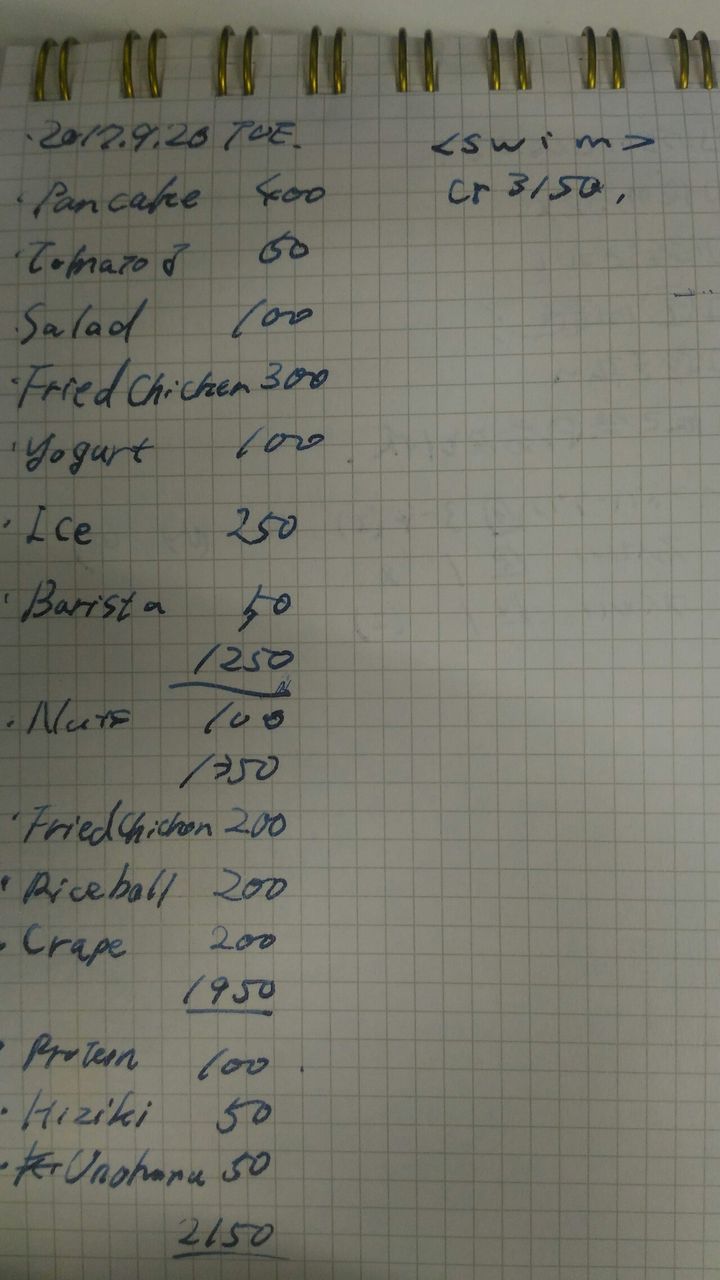 2017.9.26 TUE.
<swim>
Cr 3150.
・Pancake 400
・Tomato 50
・Salad 100
・Fried Chicken 300
・Yogurt 100
・Ice 250
・Barista 50
1250
・Nuts 100
1350
・Fried Chicken 200
・Riceball 200
・Crape 200
1950
・Protein 100
・Hiziki 50
・Unohana 50
2150